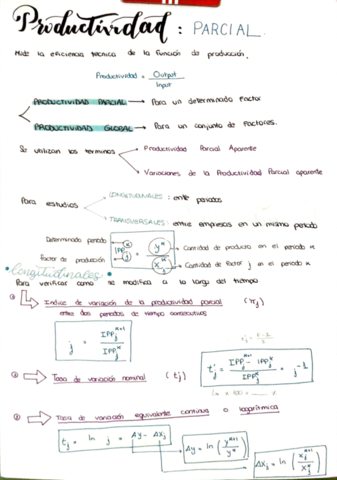 Productividad : PARCIAL
Mide la eficiencia técnica de la función de producción.
Productividad = Output
Input
PRODUCTIVIDAD PARCIAL → Para un determinado factor
PRODUCTIVIDAD GLOBAL → Para un conjunto de factores.
Se utilizan los terminos
Productividad Parcial Aparente
Variaciones de la Productividad Parcial aparente
Para estudios
LONGITUDINALES : entre periodos
TRANSVERSALES : entre empresas en un mismo periodo
Determinado periodo
Factor de producción
IPP j^n = y^n / x_j^n
Cantidad de producto en el periodo n
Cantidad de factor j en el periodo n
• longitudinales •
Para verificar como se modifica a lo largo del tiempo
① Indice de variación de la productividad parcial (πj)
entre dos periodos de tiempo consecutivos
j = IPPj^n+1 / IPPj^n
② Tasa de variación nominal (t'j)
t'j = IPPj^n+1 - IPPj^n / IPPj^n = j-1
③ Tasa de variación equivalente continua o logarítmica
tj = ln j = Δy - Δxj
Δy = ln (y^n+1 / y^n)
Δxj = ln (xj^n+1 / xj^n)